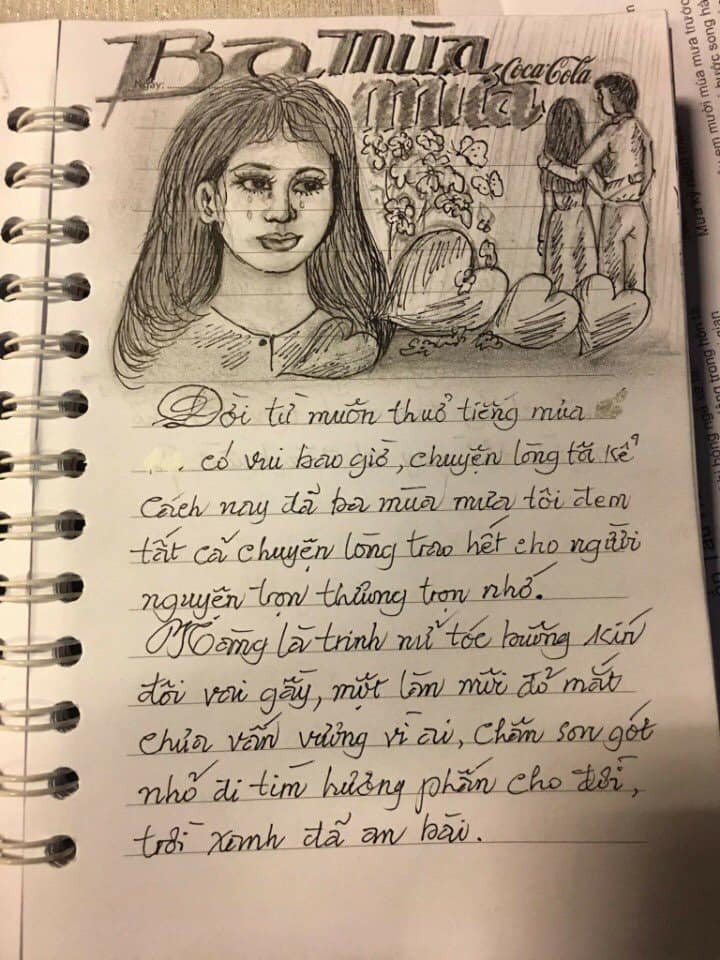 Ba mùa
mưa
Coca-Cola
Ngày:
Đời từ muôn thuở tiếng mưa
có vui bao giờ, chuyện lòng tôi kể
cách nay đã ba mùa mưa tôi đem
tất cả chuyện lòng trao hết cho người
nguyện trọn thương trọn nhớ.
Nàng là trinh nữ tóc buông kín
đôi vai gầy, một lần mới đỏ mắt
chưa vấn vương vì ai, chân son gót
nhỏ đi tìm hương phấn cho đời,
trời xanh đã an bài.